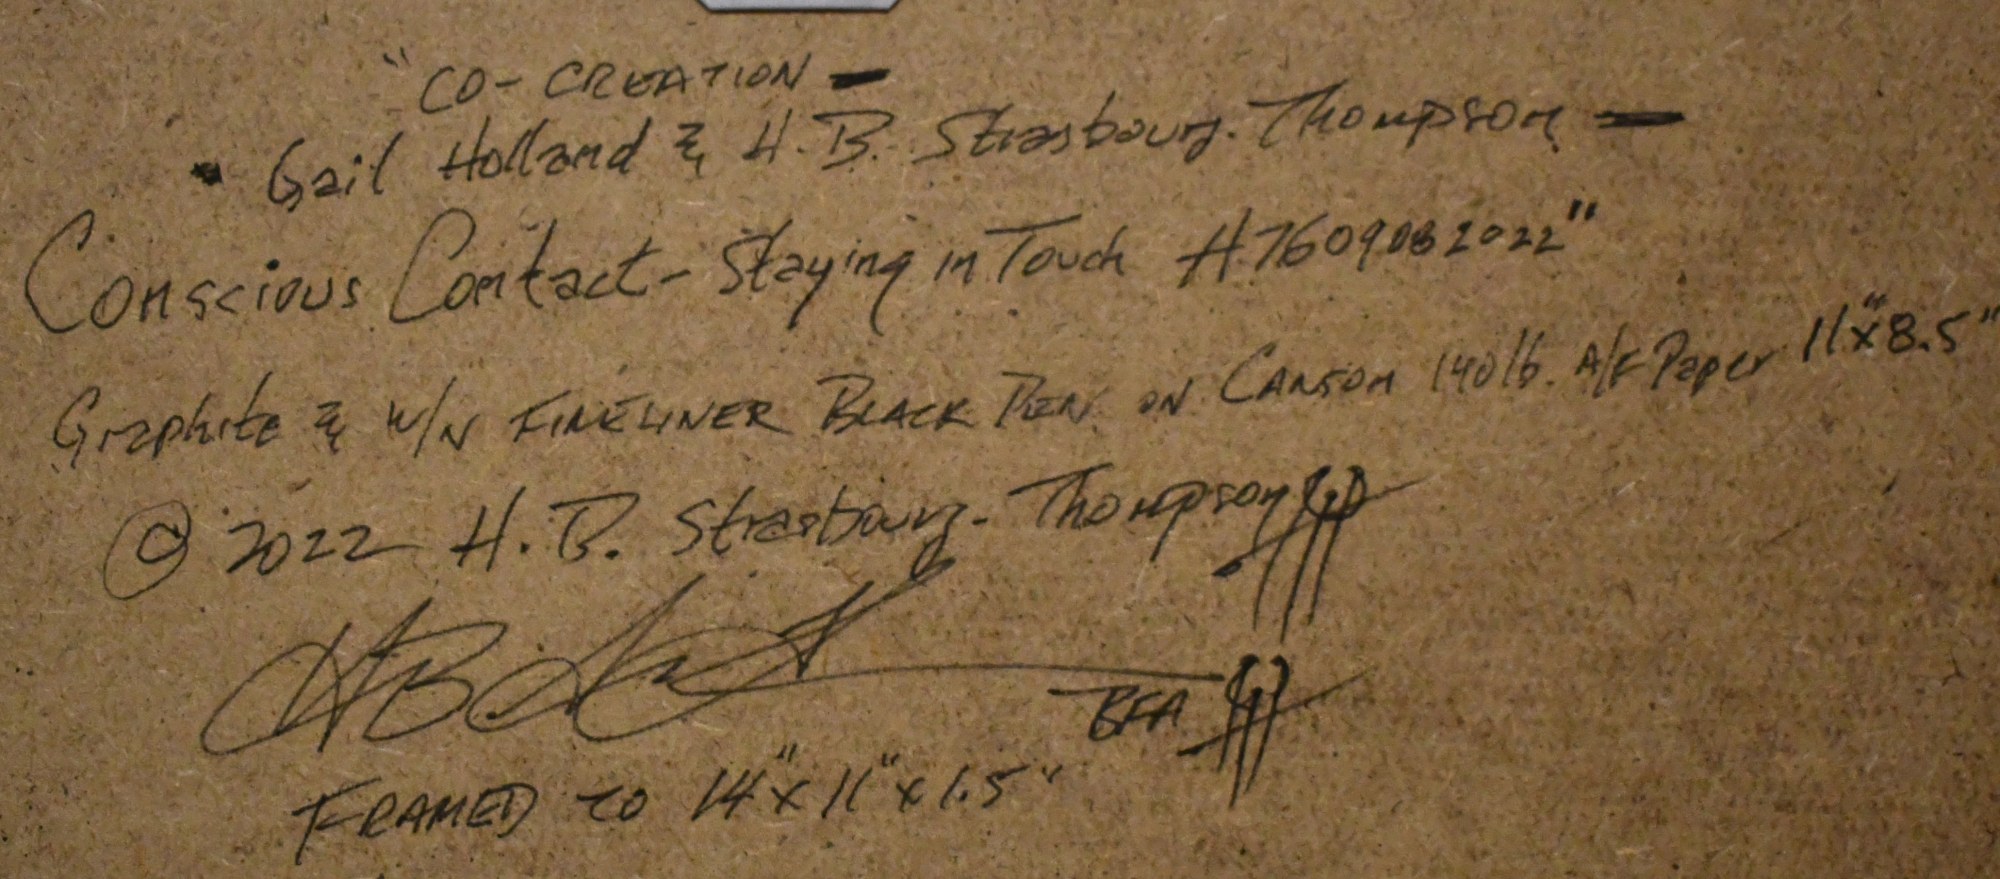 "CO-CREATION -
- Gail Holland & H.B. Strasbourg-Thompson -
Conscious Contact - Staying in Touch #7609082022"
Graphite & W/N FINELINER BLACK PEN ON CANSON 140lb. A/F Paper 11"x8.5"
© 2022 H.B. Strasbourg-Thompson
BFA
FRAMED to 14"x11"x1.5"